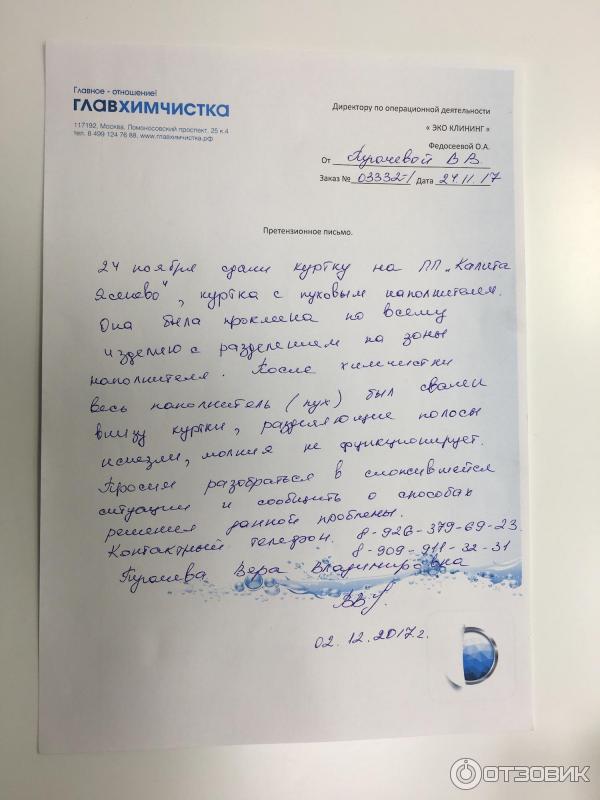 Главное - отношение!
ГЛАВХИМЧИСТКА
117192, Москва, Ломоносовский проспект, 25 к.4
тел. 8 499 124 76 88, www.главхимчистка.рф
Директору по операционной деятельности
« ЭКО КЛИНИНГ »
Федосеевой О.А.
От Пугачевой В В.
Заказ № 03332-1 Дата 24.11.17
Претензионное письмо.
24 ноября сдали куртку на ПП „Калита
Ясенево", куртка с пуховым наполнителем.
Она была проклеена по всему
изделию с разделением на зоны
наполнителя. После химчистки
весь наполнитель (пух) был свален
внизу куртки, разделяющие полосы
исчезли, молния не функционирует.
Просим разобраться в сложившейся
ситуации и сообщить о способах
решения данной проблемы.
Контактный телефон. 8-926-379-69-23.
8-909-911-32-31
Пугачева Вера Владимировна
02.12.2017г.
ОТЗОВИК